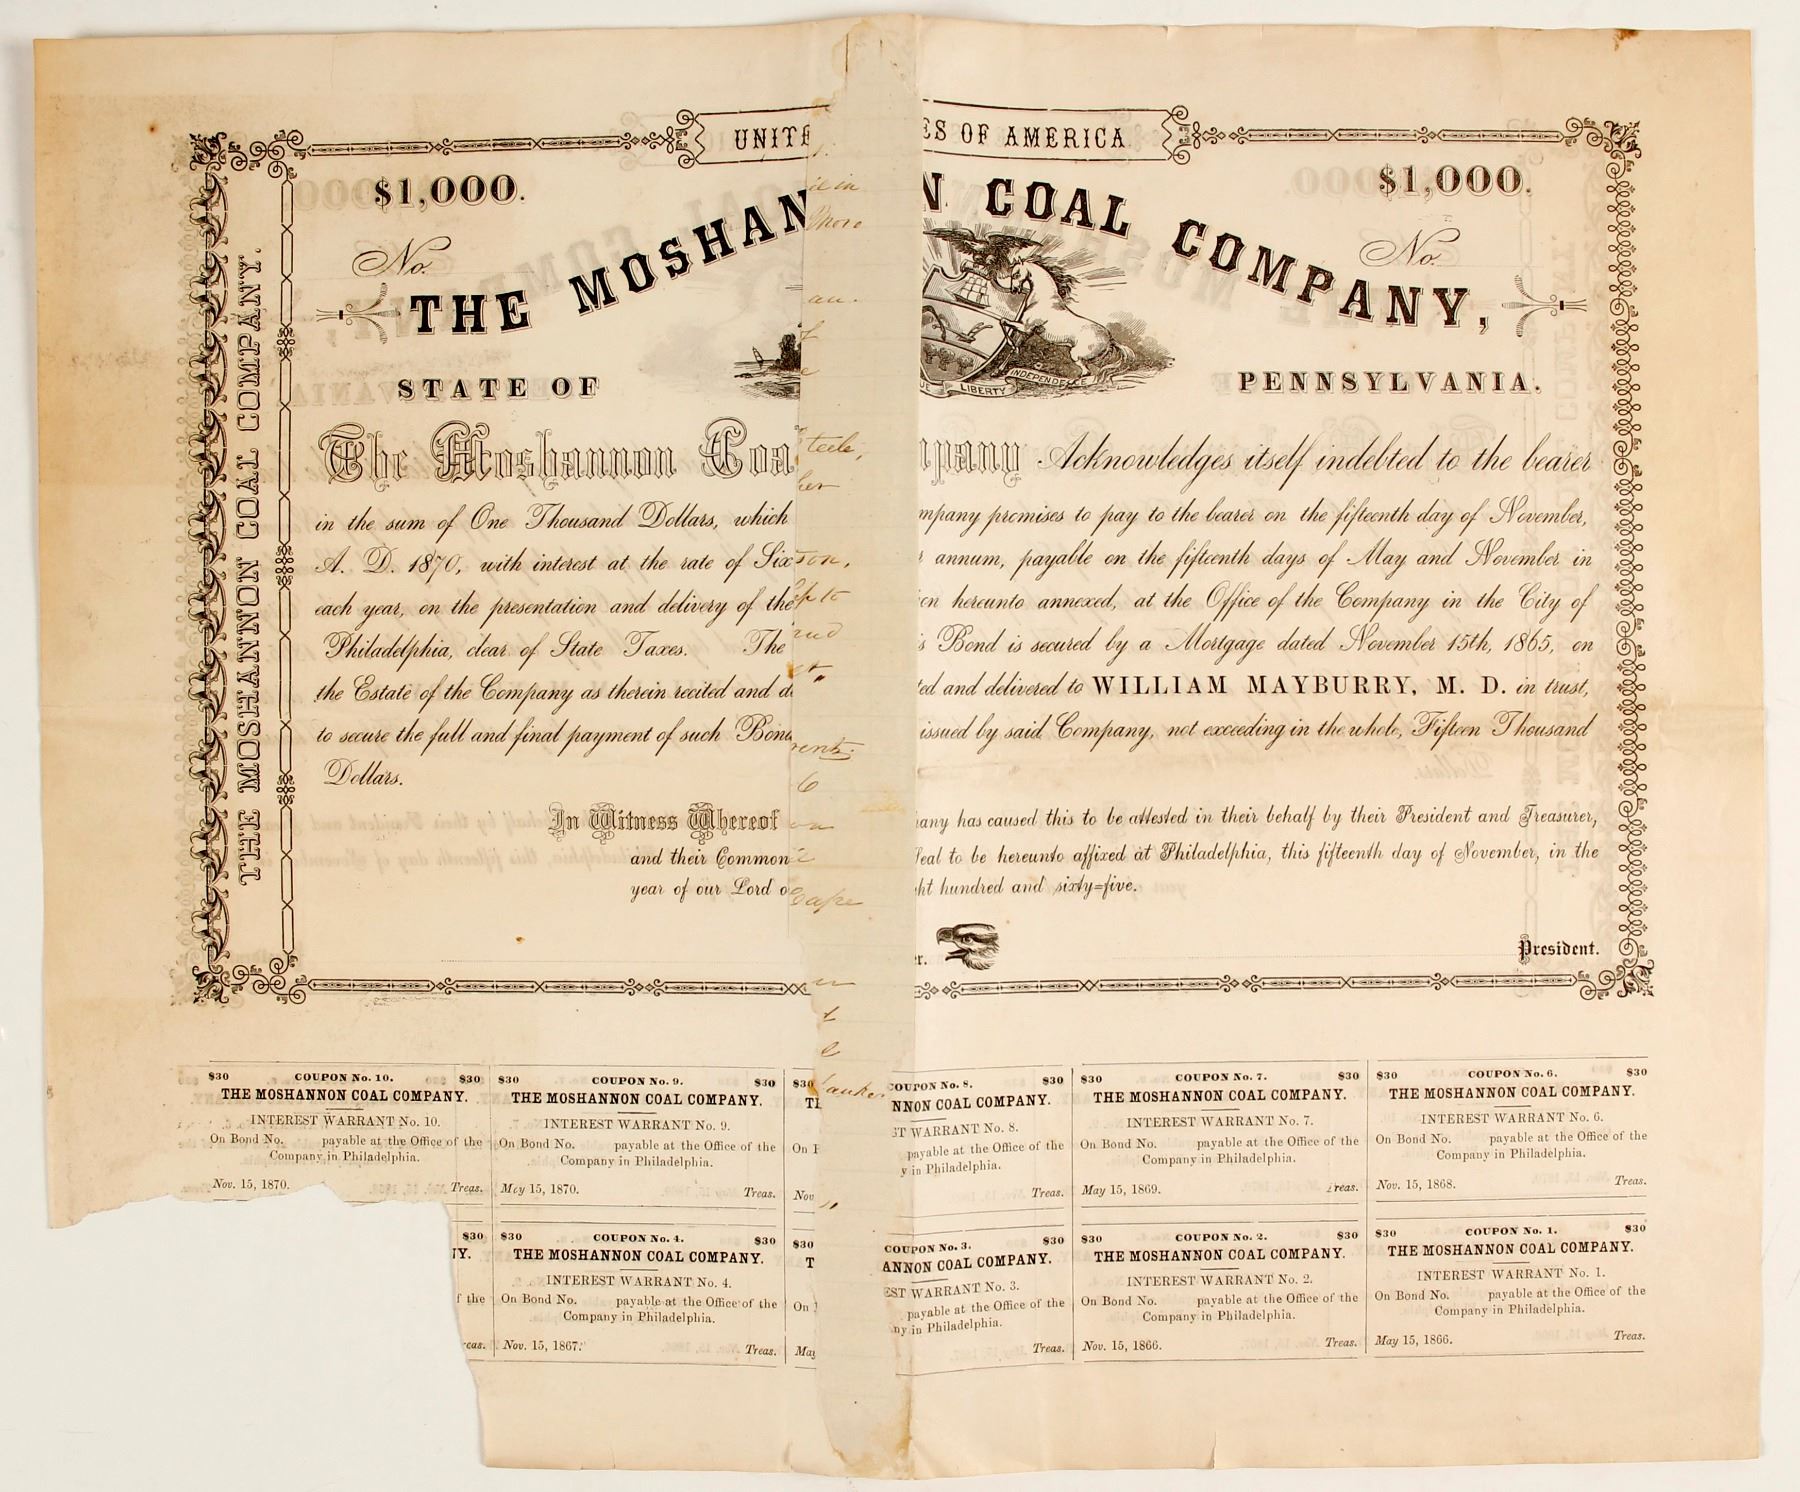 UNITE ES OF AMERICA
$1,000. $1,000.
No. No.
THE MOSHAN N COAL COMPANY,
UE LIBERTY INDEPENDENCE
STATE OF PENNSYLVANIA.
THE MOSHANNON COAL COMPANY.
The Moshannon Coa mpany Acknowledges itself indebted to the bearer
in the sum of One Thousand Dollars, which mpany promises to pay to the bearer on the fifteenth day of November,
A. D. 1870, with interest at the rate of Six annum, payable on the fifteenth days of May and November in
each year, on the presentation and delivery of the on hereunto annexed, at the Office of the Company in the City of
Philadelphia, clear of State Taxes. The s Bond is secured by a Mortgage dated November 15th, 1865, on
the Estate of the Company as therein recited and d ted and delivered to WILLIAM MAYBURRY, M. D. in trust,
to secure the full and final payment of such Bond issued by said Company, not exceeding in the whole, Fifteen Thousand
Dollars.
In Witness Whereof any has caused this to be attested in their behalf by their President and Treasurer,
and their Common Seal to be hereunto affixed at Philadelphia, this fifteenth day of November, in the
year of our Lord o ht hundred and sixty=five.
r. President.
$30 COUPON No. 10. $30
THE MOSHANNON COAL COMPANY.
INTEREST WARRANT No. 10.
On Bond No. payable at the Office of the
Company in Philadelphia.
Nov. 15, 1870. Treas.
$30 COUPON No. 9. $30
THE MOSHANNON COAL COMPANY.
INTEREST WARRANT No. 9.
On Bond No. payable at the Office of the
Company in Philadelphia.
May 15, 1870. Treas.
$30 COUPON No. 8. $30
TH NNON COAL COMPANY.
ST WARRANT No. 8.
On B payable at the Office of the
y in Philadelphia.
Nov Treas.
$30 COUPON No. 7. $30
THE MOSHANNON COAL COMPANY.
INTEREST WARRANT No. 7.
On Bond No. payable at the Office of the
Company in Philadelphia.
May 15, 1869. Treas.
$30 COUPON No. 6. $30
THE MOSHANNON COAL COMPANY.
INTEREST WARRANT No. 6.
On Bond No. payable at the Office of the
Company in Philadelphia.
Nov. 15, 1868. Treas.
$30
NY.
f the
eas.
$30 COUPON No. 4. $30
THE MOSHANNON COAL COMPANY.
INTEREST WARRANT No. 4.
On Bond No. payable at the Office of the
Company in Philadelphia.
Nov. 15, 1867. Treas.
$30 COUPON No. 3. $30
T ANNON COAL COMPANY.
EST WARRANT No. 3.
On payable at the Office of the
ny in Philadelphia.
May Treas.
$30 COUPON No. 2. $30
THE MOSHANNON COAL COMPANY.
INTEREST WARRANT No. 2.
On Bond No. payable at the Office of the
Company in Philadelphia.
Nov. 15, 1866. Treas.
$30 COUPON No. 1. $30
THE MOSHANNON COAL COMPANY.
INTEREST WARRANT No. 1.
On Bond No. payable at the Office of the
Company in Philadelphia.
May 15, 1866. Treas.